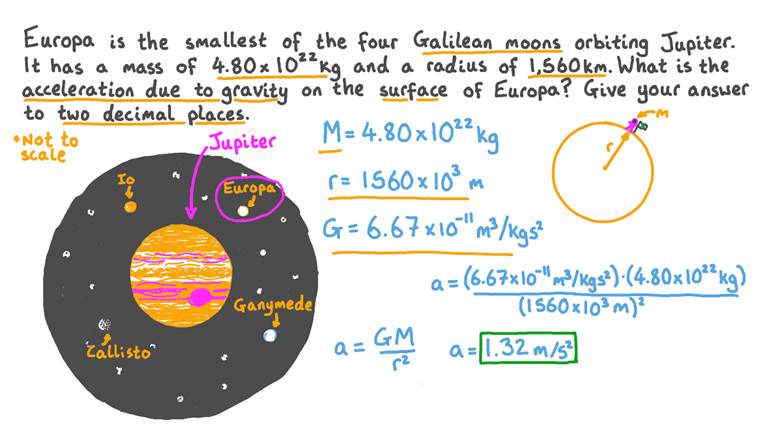 Europa is the smallest of the four Galilean moons orbiting Jupiter.
It has a mass of 4.80 x 10²² kg and a radius of 1,560 km. What is the
acceleration due to gravity on the surface of Europa? Give your answer
to two decimal places.
*Not to
scale
Jupiter
Io
Europa
Ganymede
Callisto
M = 4.80 x 10²² kg
r = 1560 x 10³ m
G = 6.67 x 10⁻¹¹ m³/kgs²
m
r
a = (6.67 x 10⁻¹¹ m³/kgs²) · (4.80 x 10²² kg)
(1560 x 10³ m)²
a = GM
r²
a = 1.32 m/s²